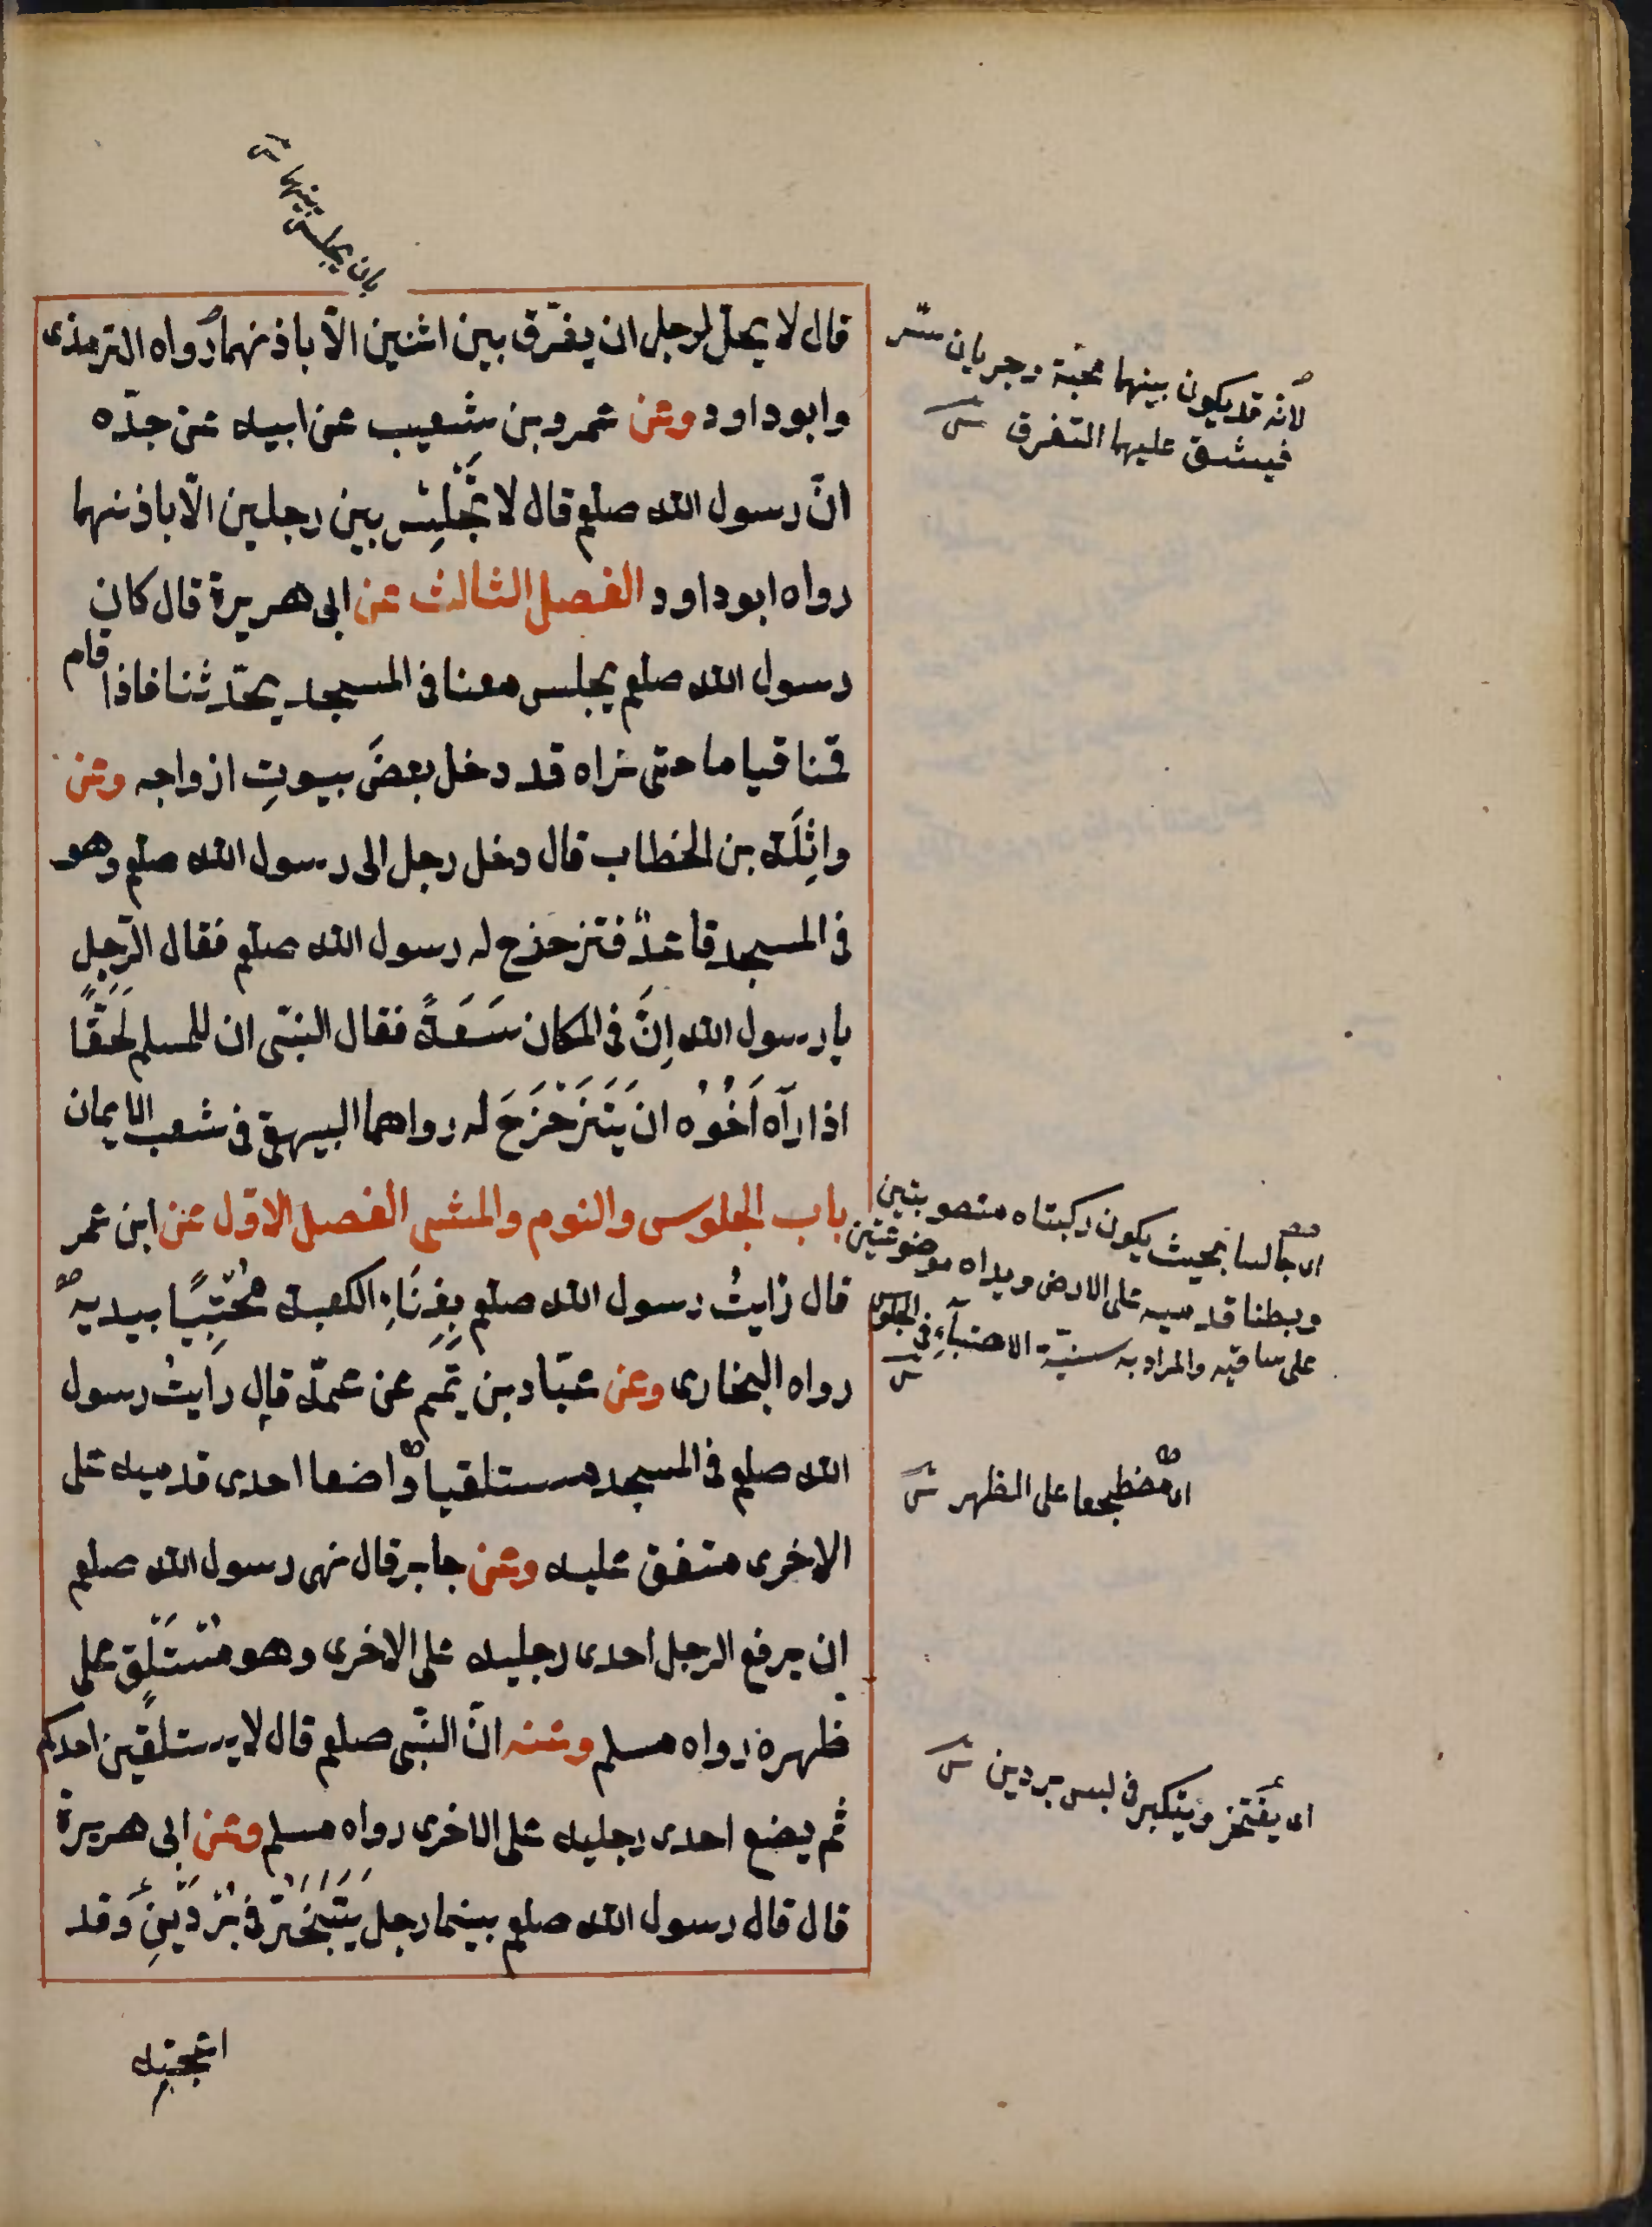 بان يجلس بينهما ش
قال لا يحل لرجل ان يفرّق بين اثنين الّا باذنهما رواه الترمذى
وابو داود وعن عمرو بن شعيب عن ابيه عن جدّه
انّ رسول الله صلعم قال لا تَجْلِسْ بين رجلين الّا باذنهما
رواه ابو داود الفصل الثالث عن ابى هريرة قال كان
رسول الله صلعم يجلس معنا فى المسجد يحدّثنا فاذا قام
قمنا قياما حتى نراه قد دخل بعضَ بيوتِ ازواجه وعن
واثِلَة بن الخطاب قال دخل رجل الى رسول الله صلعم وهو
فى المسجد قاعدٌ فتزحزح له رسول الله صلعم فقال الرّجل
يا رسول الله اِنَّ فى المكان سَعَةً فقال النبىّ ان للمسلم لَحَقًّا
اذا رآه اَخُوُه ان يَتَزَحْزَحَ له رواهما البيهقى فى شعب الايمان
باب الجلوس والنوم والمشى الفصل الاوّل عن ابن عمر
قال رَايتُ رسول الله صلعم بِفِنَاءِ الكعبة مُحْتَبِيًا بيديه
رواه البخارى وعن عبّاد بن تميم عن عمّه قال رَايتُ رسول
الله صلعم فى المسجد مستلقيا واضعا احدى قدميه على
الاخرى متفق عليه وعن جابر قال نهى رسول الله صلعم
ان يرفع الرجل احدى رجليه على الاخرى وهو مُسْتَلْقٍ على
ظهره رواه مسلم وعنه انّ النّبى صلعم قال لا يستلقين احدكم
ثم يضع احدى رجليه على الاخرى رواه مسلم وعن ابى هريرة
قال قال رسول الله صلعم بينما رجل يَتَبَخْتَرُ فى بُرْدَيْنِ وقد
اعجبته
لانّه قد يكون بينهما محبّة وجريان سّر
فيشق عليهما التفرق ش
اى جالسا بحيث يكون ركبتاه منصوبتين
وبطنا قدميه على الارض ويداه موضوعتين
على ساقيه والمراد به سنيّة الاحتبآءِ فى الجلوس
ش
اى مضطجعا على الظهر ش
اى يفتخر ويتكبر فى لبس بردين ش